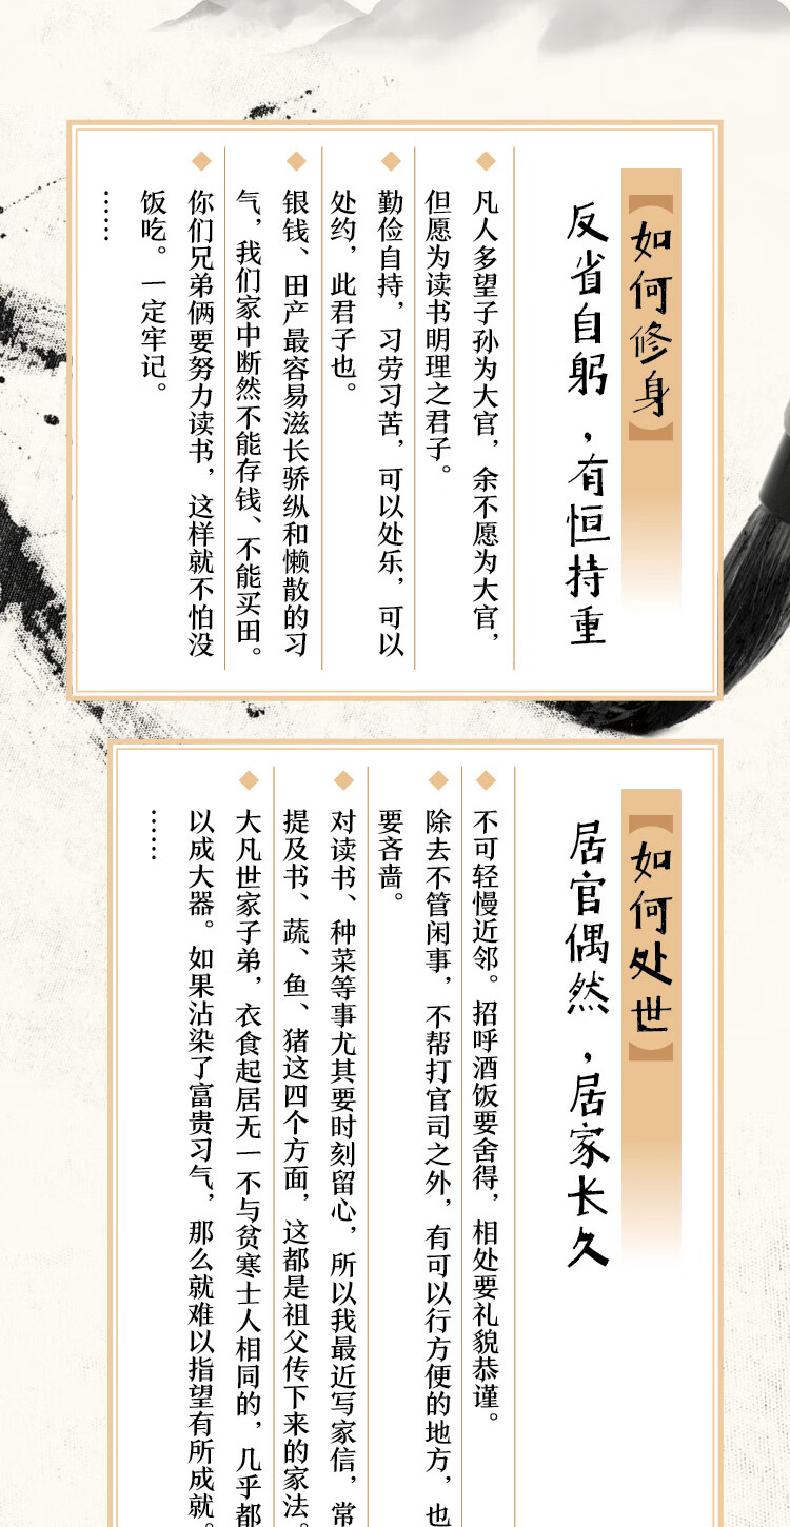 【如何修身】
反省自躬，有恒持重
凡人多望子孙为大官，余不愿为大官，
但愿为读书明理之君子。
勤俭自持，习劳习苦，可以处乐，可以
处约，此君子也。
银钱、田产最容易滋长骄纵和懒散的习
气，我们家中断然不能存钱、不能买田。
你们兄弟俩要努力读书，这样就不怕没
饭吃。一定牢记。
……
【如何处世】
居官偶然，居家长久
不可轻慢近邻。招呼酒饭要舍得，相处要礼貌恭谨。
除去不管闲事，不帮打官司之外，有可以行方便的地方，也
要吝啬。
对读书、种菜等事尤其要时刻留心，所以我最近写家信，常
提及书、蔬、鱼、猪这四个方面，这都是祖父传下来的家法。
大凡世家子弟，衣食起居无一不与贫寒士人相同的，几乎都
以成大器。如果沾染了富贵习气，那么就难以指望有所成就。
……